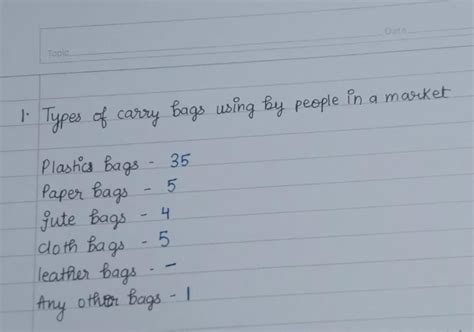 Topic Date
1. Types of carry bags using by people in a market
Plastics bags - 35
Paper bags - 5
jute bags - 4
cloth bags - 5
leather bags - -
Any other bags - 1